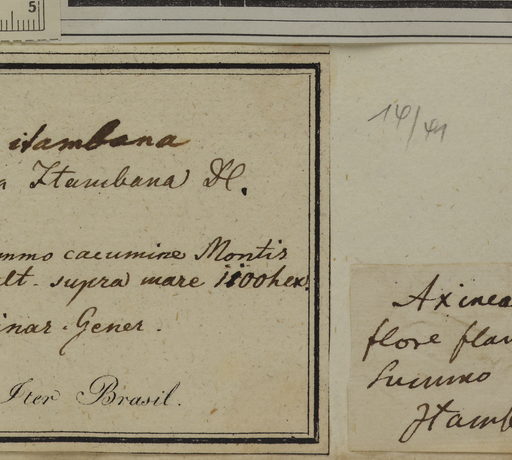 5
itambana
a Itambana DC.
ummo cacumine Montis
alt. supra mare 1100 hex.
inar. Gener.
Iter Brasil.
14/41
Axinea
flore flav
Summo
Itamb